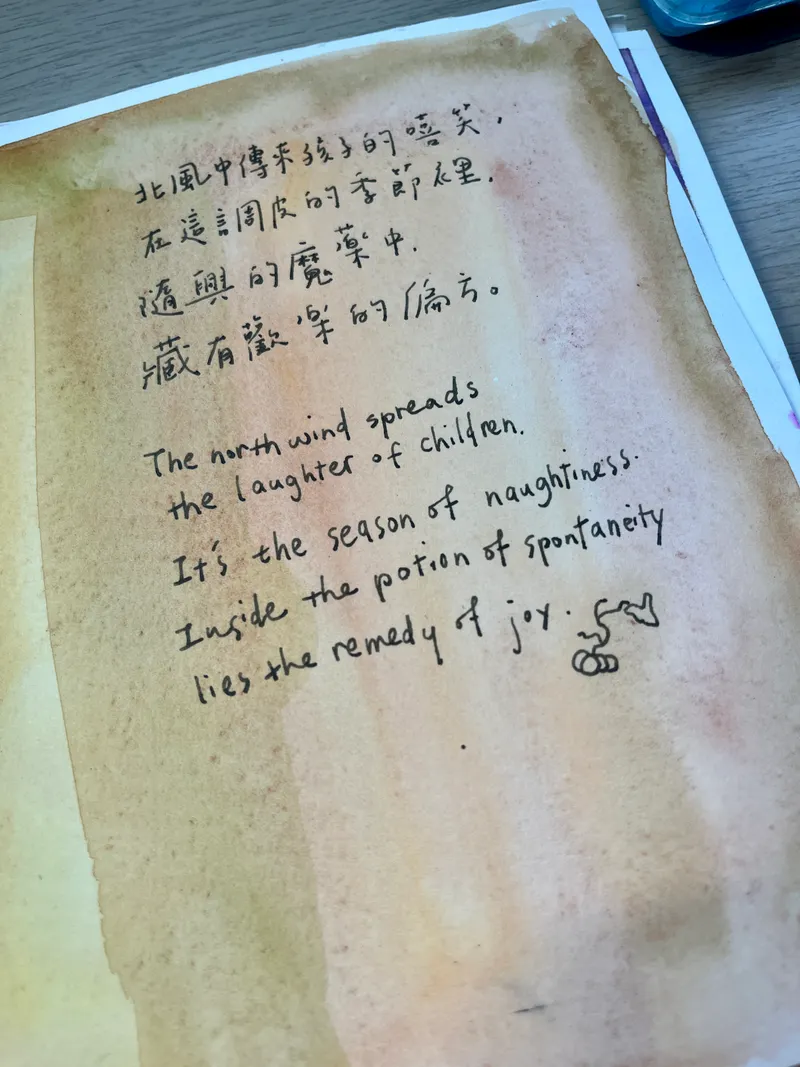 北風中傳來孩子的嘻笑,
在這調皮的季節裡.
隨興的魔藥中.
藏有歡樂的偏方。
The north wind spreads
the laughter of children.
It's the season of naughtiness.
Inside the potion of spontaneity
lies the remedy of joy.